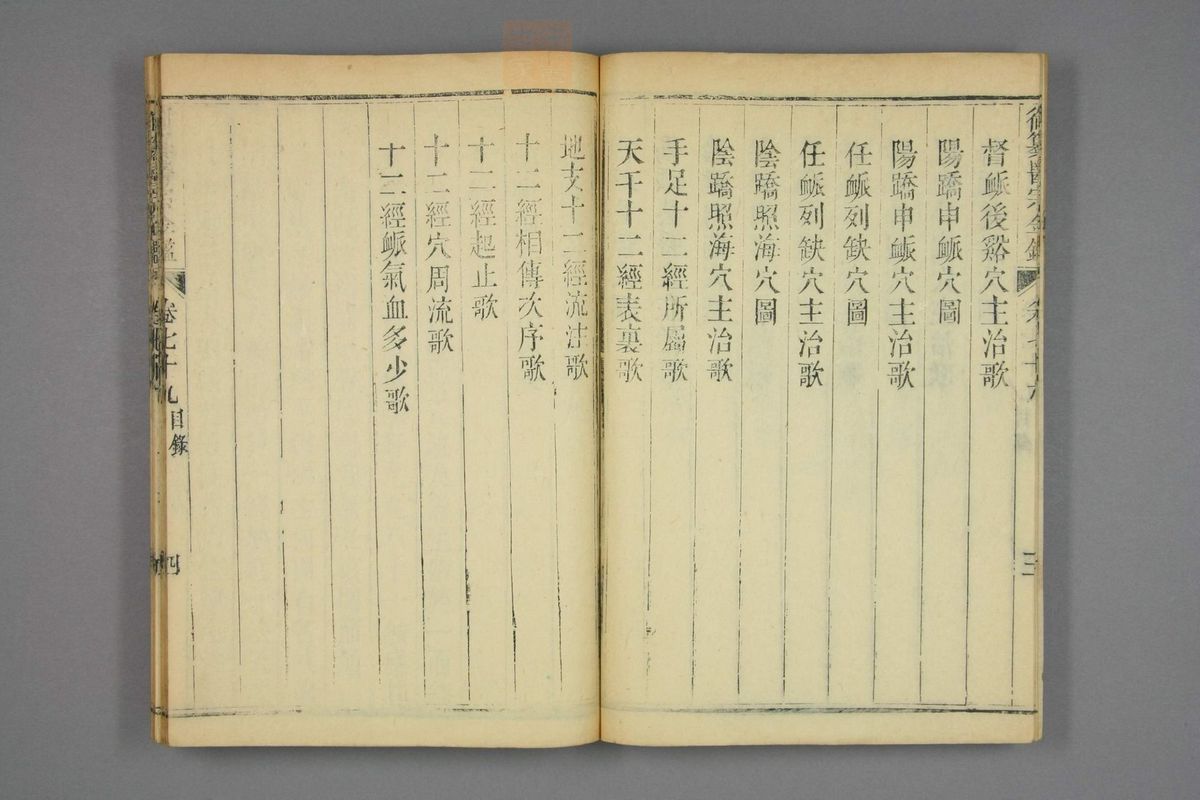 督脈後谿穴主治歌
陽蹻申脈穴圖
陽蹻申脈穴主治歌
任脈列缺穴圖
任脈列缺穴主治歌
陰蹻照海穴圖
陰蹻照海穴主治歌
手足十二經所屬歌
天干十二經表裏歌
三
地支十二經流注歌
十二經相傳次序歌
十二經起止歌
十二經穴周流歌
十二經脈氣血多少歌
卷七十九
目錄
四